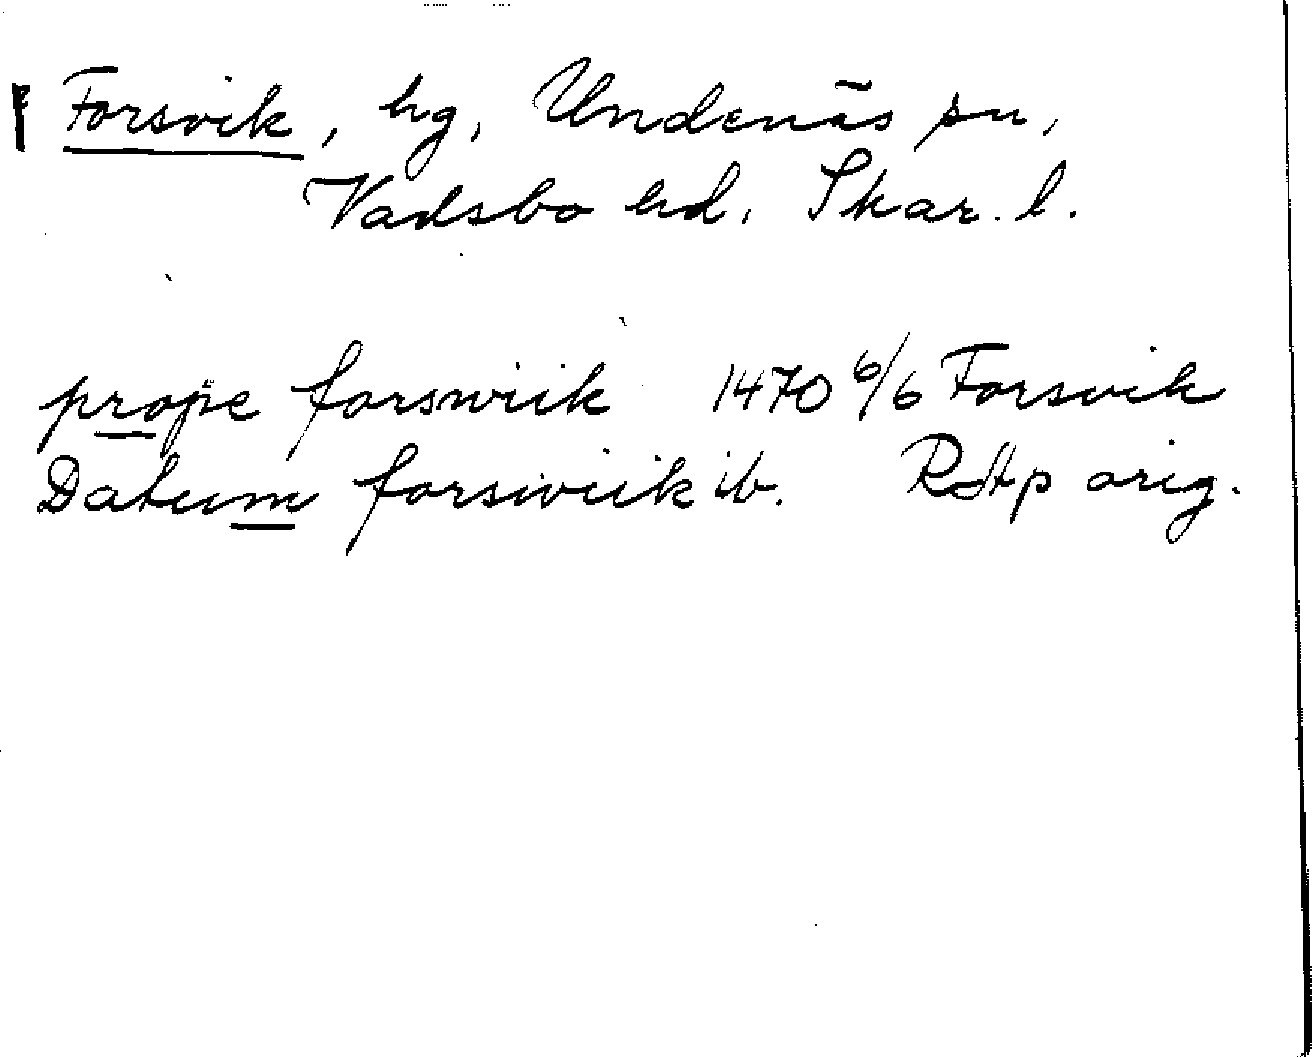 Forsvik, hg, Undenäs sn,
Vadsbo hd. Skar. l.
prope forswiik 1470 6/6 Forsvik
Datum forswiik ib. RAp orig.